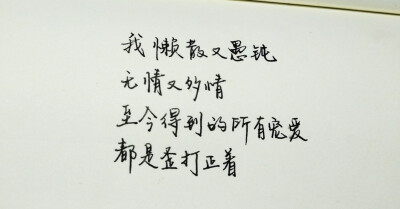 我懒散又愚钝
无情又多情
至今得到的所有宠爱
都是歪打正着